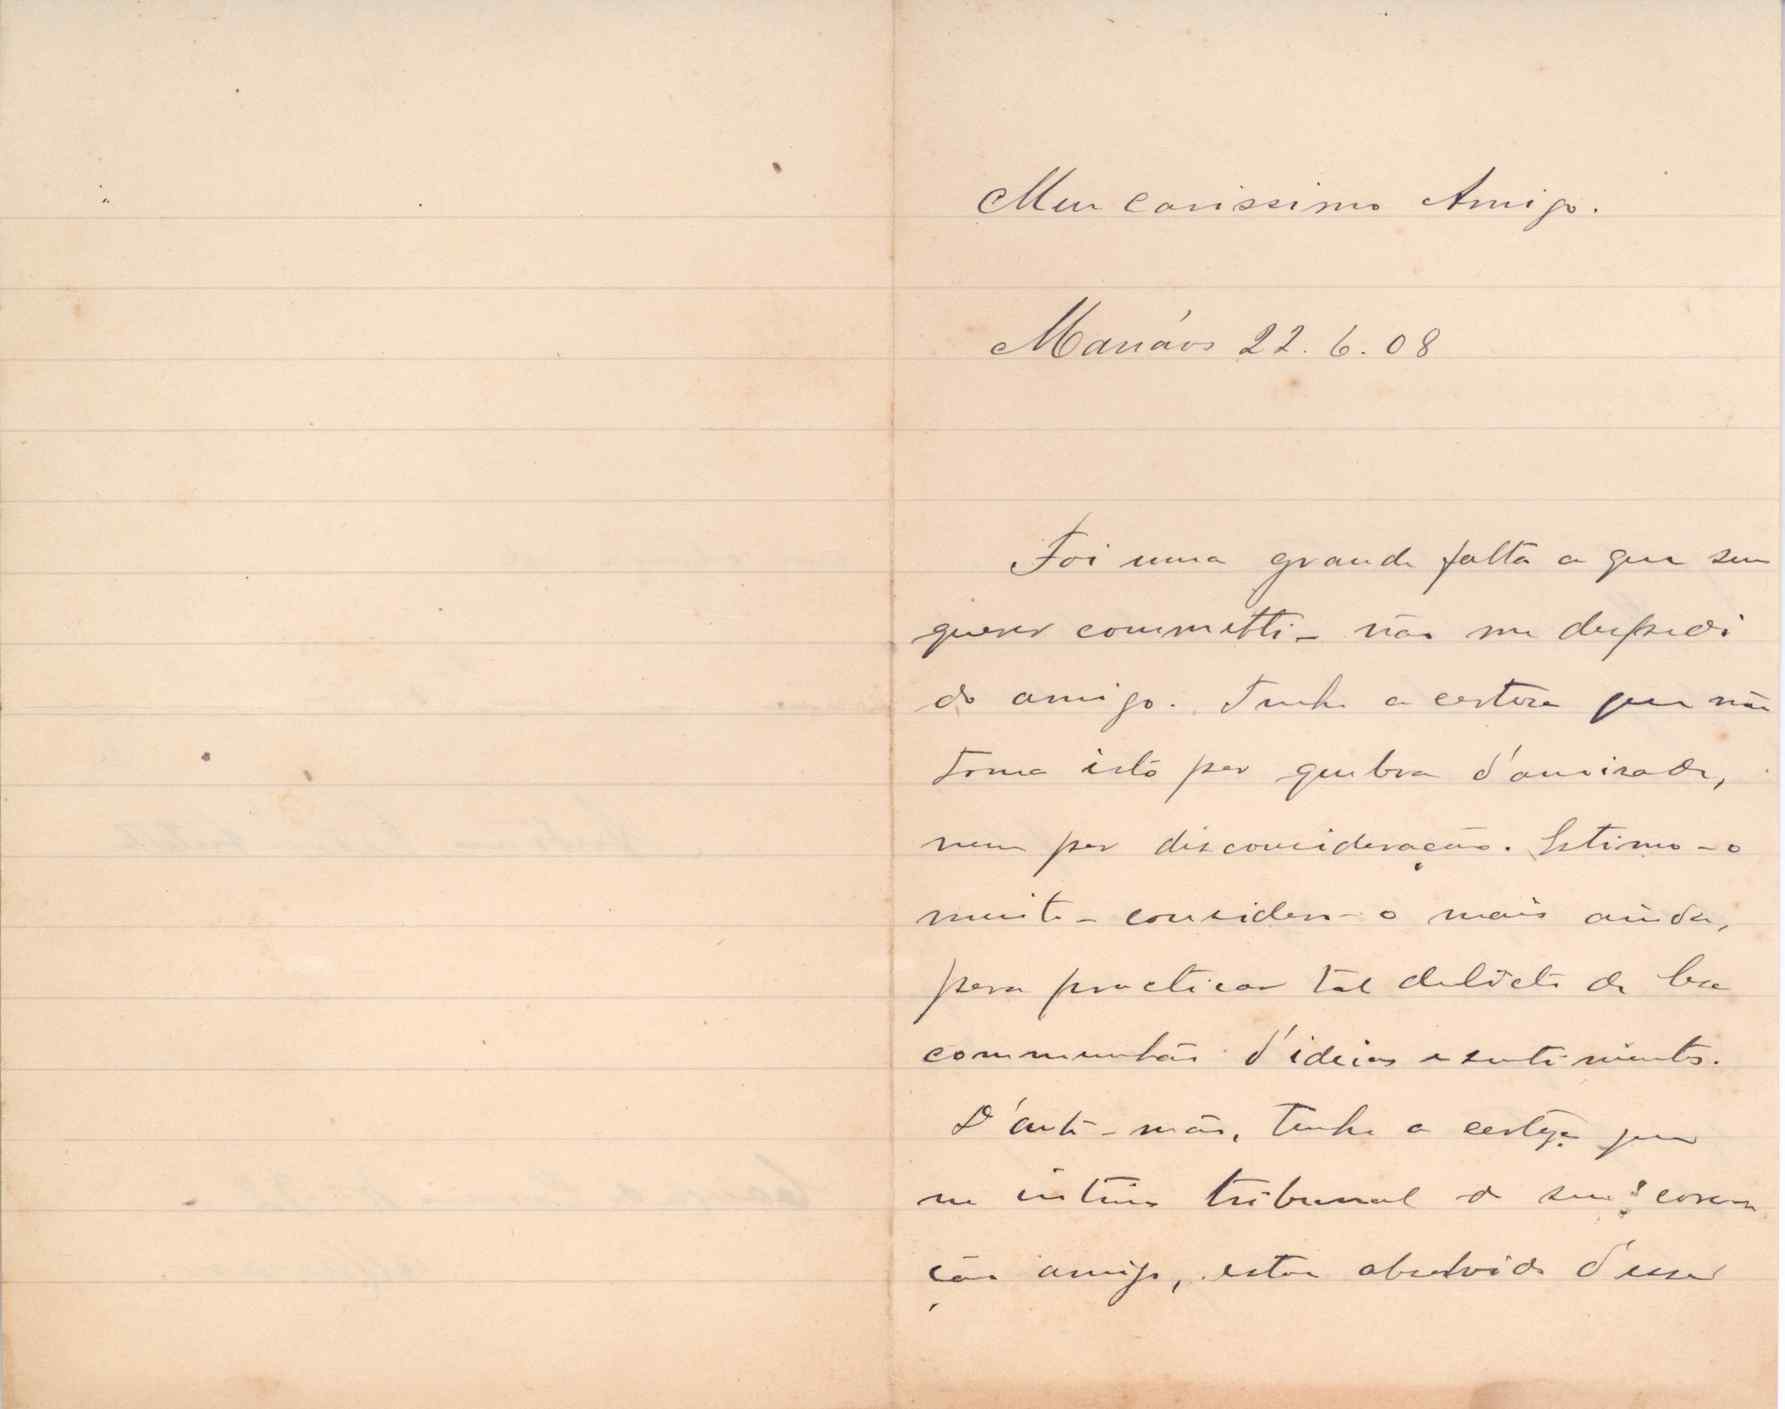 Meu carissimo Amigo.
Manáos 22.6.08
Foi uma grande falta a que sem
querer commetti - não me despedi
do amigo. Tenho a certeza que não
toma isto por quebra d'amizade,
nem por disconsideração. Estimo-o
muito - considero-o mais ainda,
para practicar tal delicto de lesa
communhão d'ideias e sentimentos.
D'ante-mão, tenho a certeza que
no intimo tribunal do seu cora-
ção amigo, estou absolvido d'esse